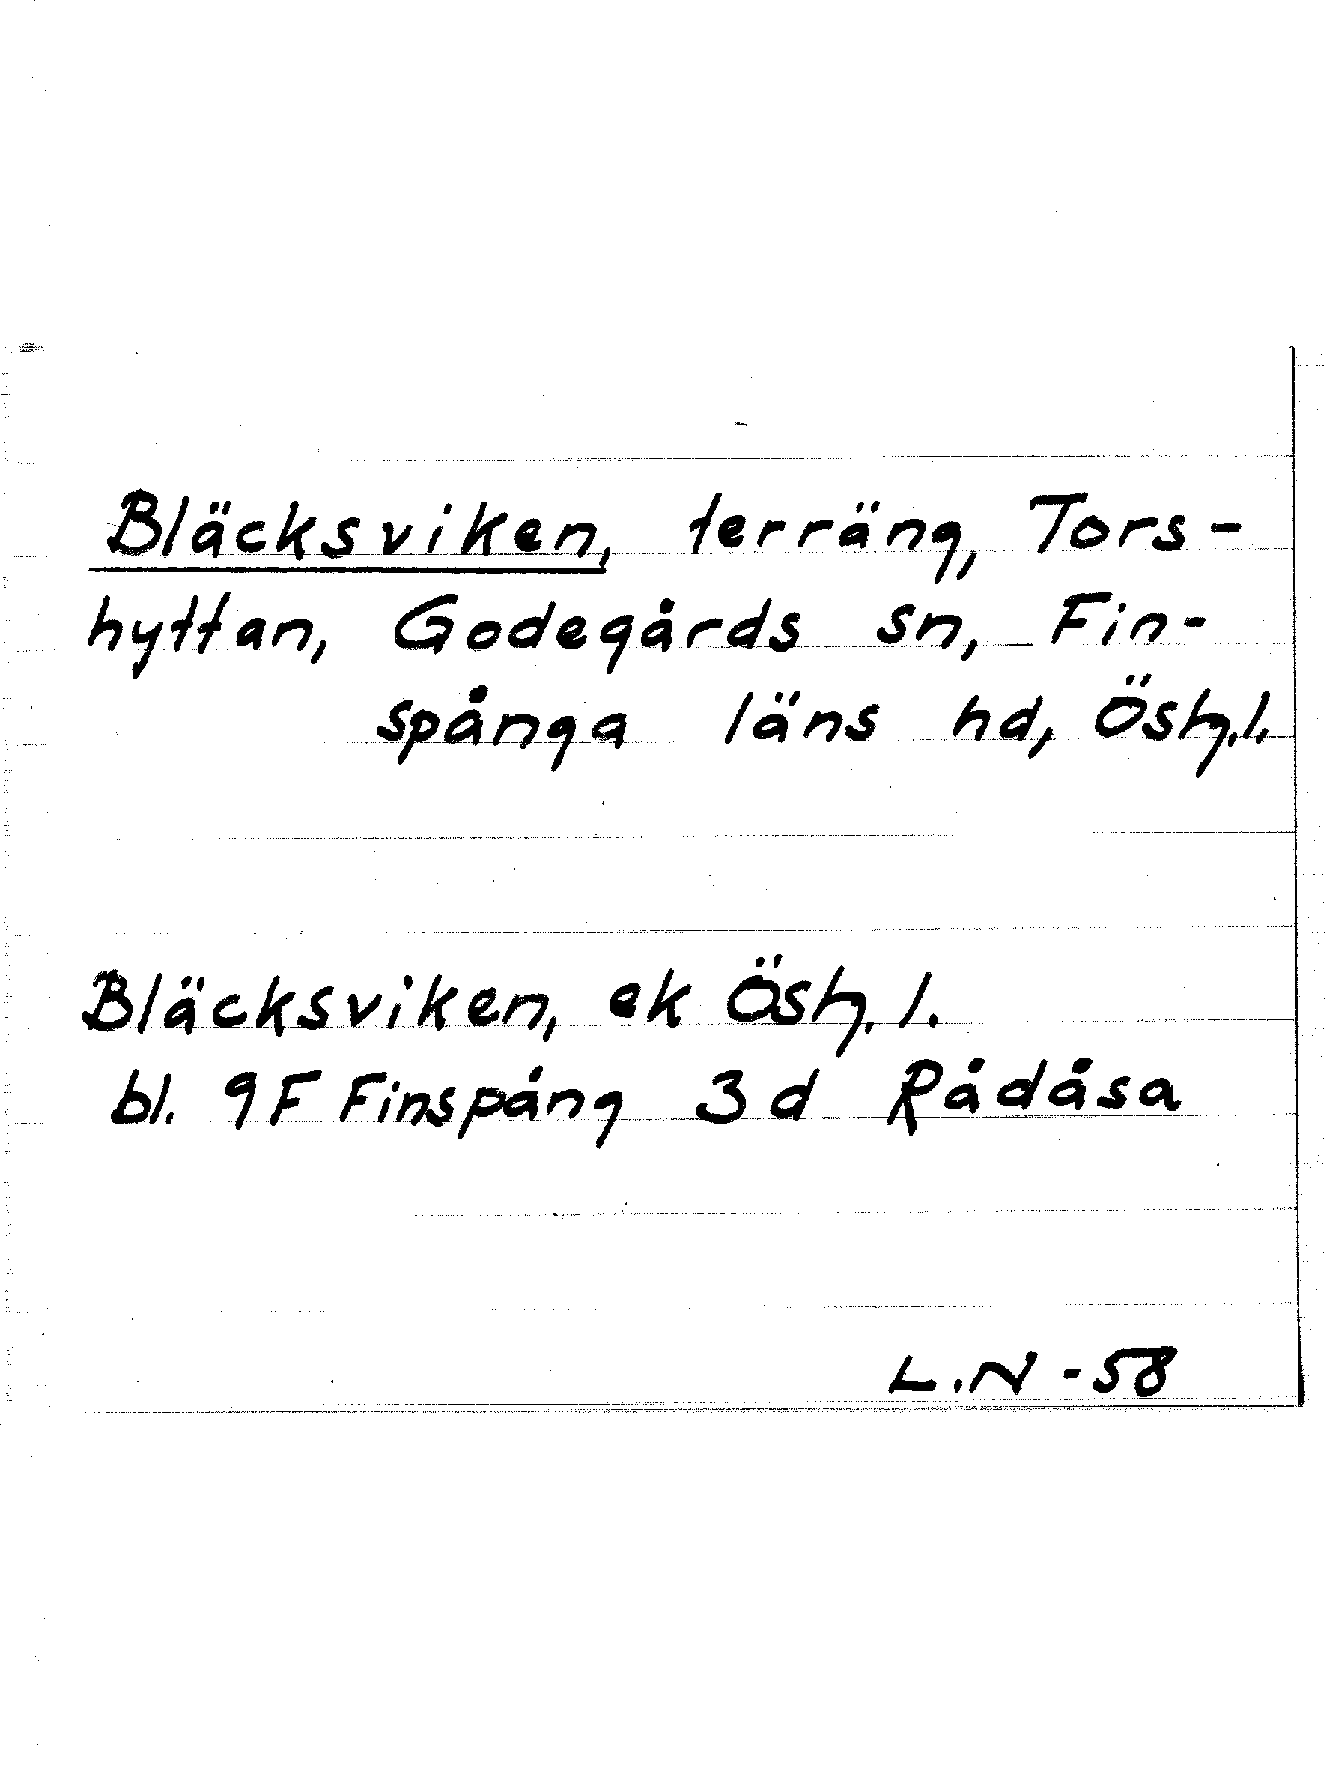 Bläcksviken, terräng, Tors-
hyttan, Godegårds sn, Fin-
spånga läns hd, Östg.l.
Bläcksviken, ek Östg. l.
bl. 9F Finspång 3d Rådåsa
L.N -58